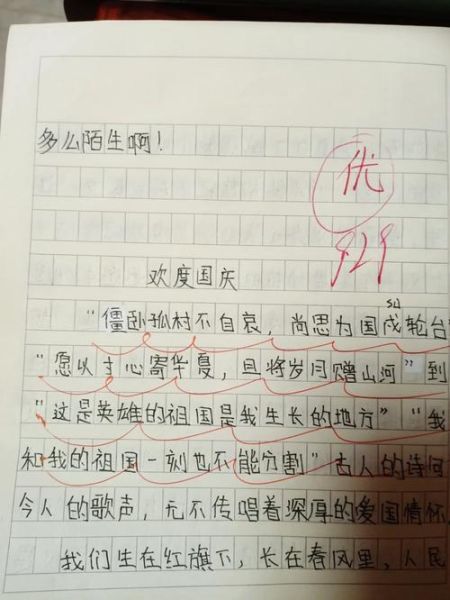 多么陌生啊！
优
929
欢度国庆
"僵卧孤村不自哀，尚思为国戍轮台"
"愿以寸心寄华夏，且将岁月赠山河"到
"这是英雄的祖国是我生长的地方""我
和我的祖国一刻也不能分割"古人的诗词
今人的歌声，无不传唱着深厚的爱国情怀
我们生在红旗下，长在春风里，人民